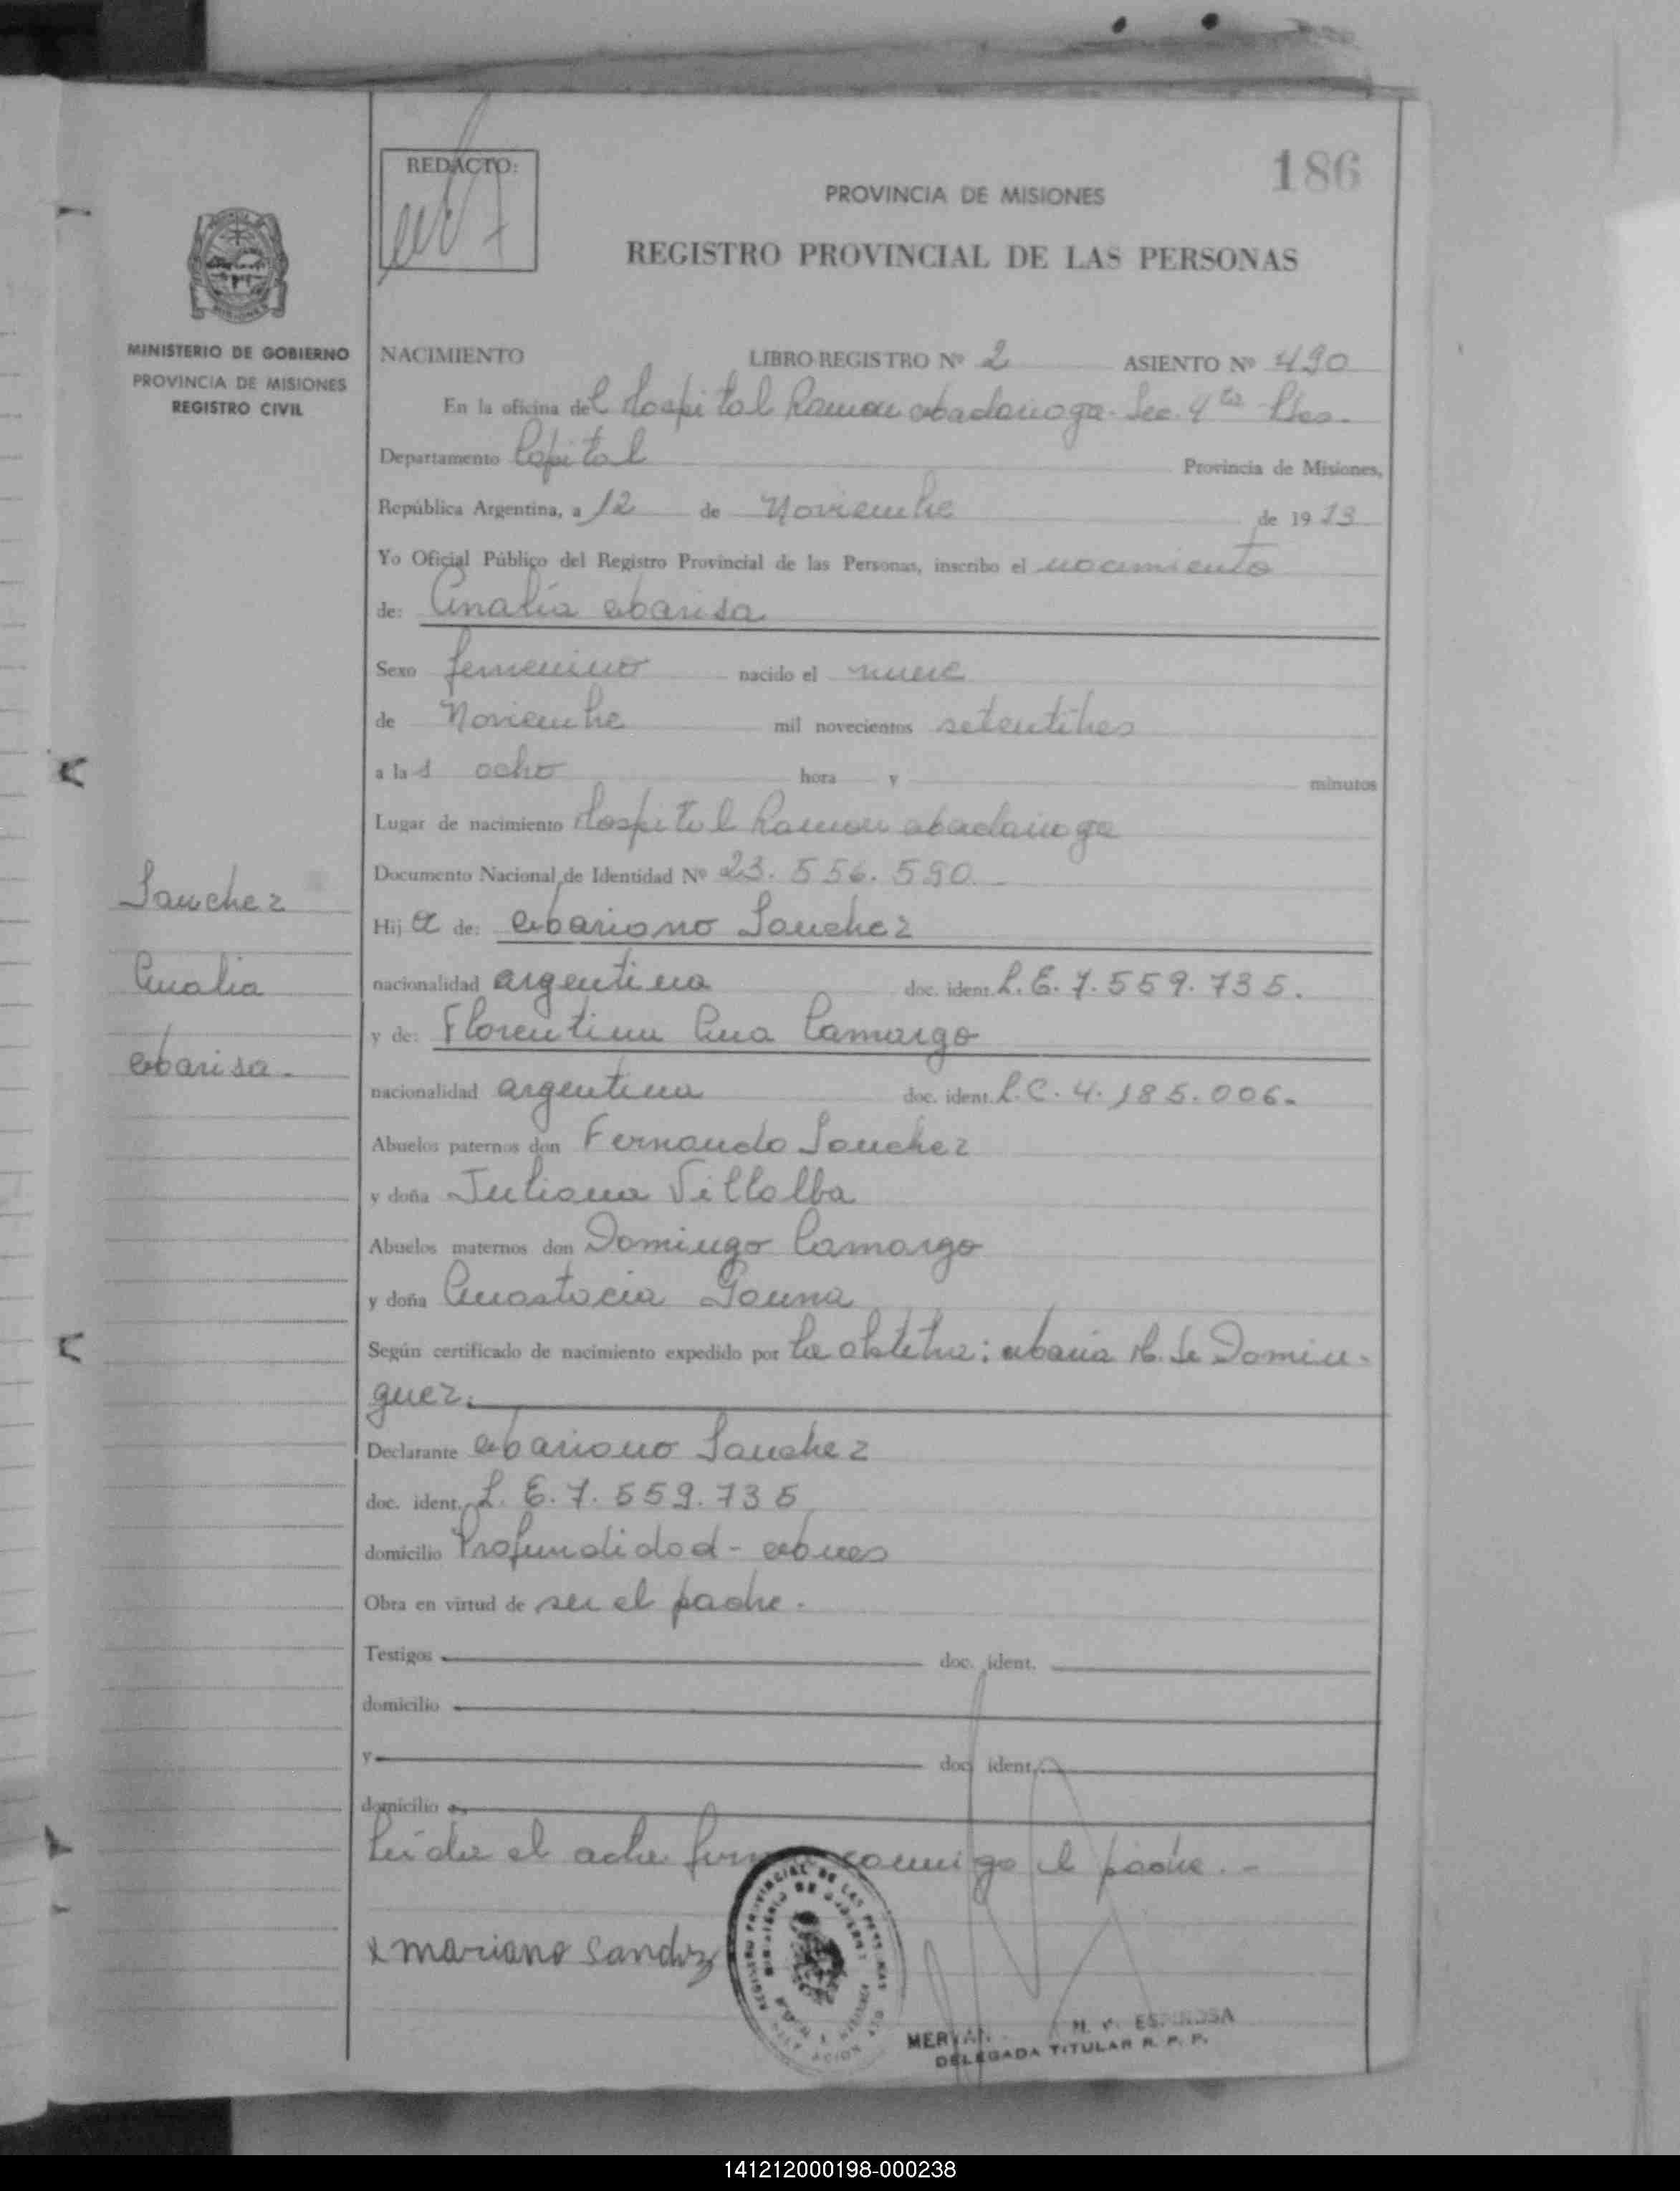 186
REDACTO:
PROVINCIA DE MISIONES
REGISTRO PROVINCIAL DE LAS PERSONAS
MINISTERIO DE GOBIERNO
PROVINCIA DE MISIONES
REGISTRO CIVIL
NACIMIENTO LIBRO REGISTRO Nº 2 ASIENTO Nº 490
En la oficina del Hospital Ramon Madariaga - Sec. 4ta Pdas.
Departamento Capital Provincia de Misiones,
República Argentina, a 12 de Noviembre de 1973
Yo Oficial Público del Registro Provincial de las Personas, inscribo el nacimiento
de: Analia Marisa
Sexo femenino nacido el nueve
de Noviembre mil novecientos setentitres
a las ocho hora y minutos
Lugar de nacimiento Hospital Ramon Madariaga
Documento Nacional de Identidad Nº 23.556.590
Sanchez
Analia
Marisa.
Hija de: Mariano Sanchez
nacionalidad argentina doc. ident. L.E. 7.559.735.
y de: Florentina Ana Camargo
nacionalidad argentina doc. ident. L.C. 4.185.006.
Abuelos paternos don Fernando Sanchez
y doña Juliana Villalba
Abuelos maternos don Domingo Camargo
y doña Anastacia Gauna
Según certificado de nacimiento expedido por la obstetra: Maria H. de Domin-
guez.
Declarante Mariano Sanchez
doc. ident. L.E. 7.559.735
domicilio Profundidad - Mnes
Obra en virtud de ser el padre.
Testigos doc. ident.
domicilio
y doc. ident.
domicilio
Leida el acta firma conmigo el padre. -
x mariano Sanchez
REGISTRO PROVINCIAL DE LAS PERSONAS
MINISTERIO DE GOBIERNO
ESPINOSA
DELEGADA TITULAR R. P. P.
141212000198-000238